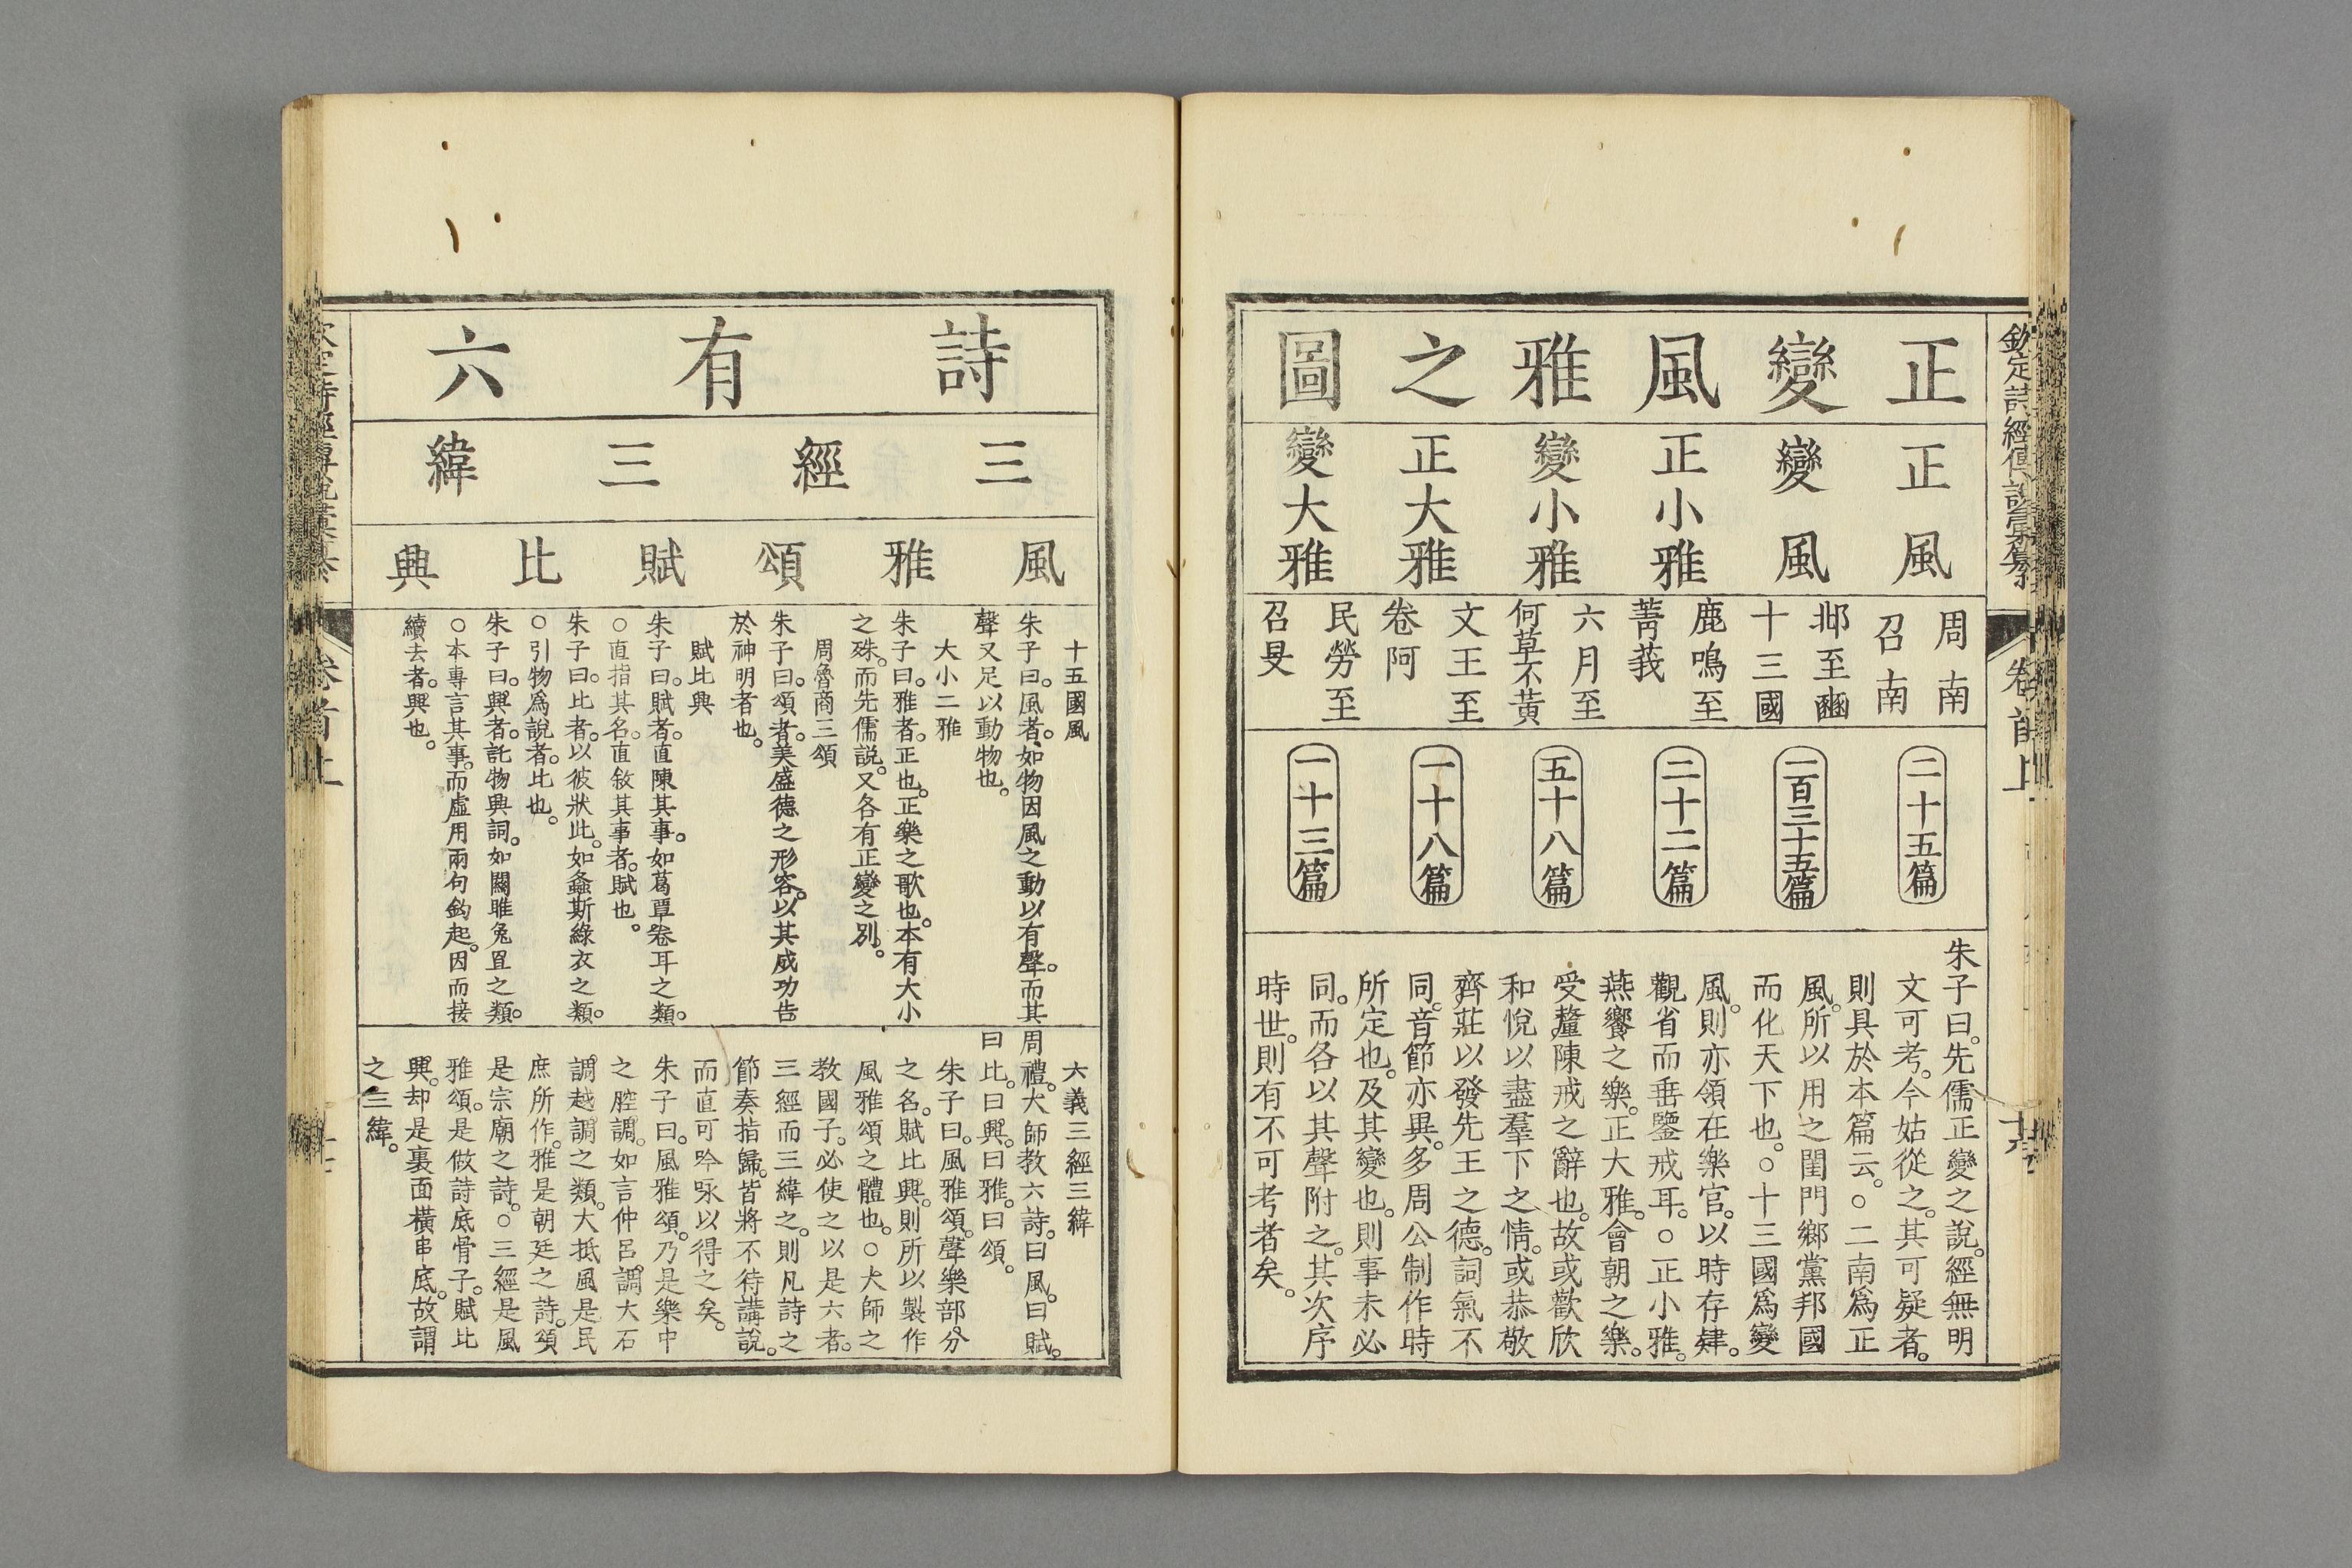 欽定詩經傳說彙纂
卷首上
正變風雅之圖
正風
變風
正小雅
變小雅
正大雅
變大雅
周南
召南
邶至豳
十三國
鹿鳴至
菁莪
六月至
何草不黃
文王至
卷阿
民勞至
召旻
二十五篇
一百三十五篇
二十二篇
五十八篇
一十八篇
一十三篇
朱子曰。先儒正變之說。經無明
文可考。今姑從之。其可疑者。
則具於本篇云。○二南爲正
風。所以用之閨門鄉黨邦國
而化天下也。○十三國爲變
風。則亦領在樂官。以時存肄。
觀省而垂鑒戒耳。○正小雅。
燕饗之樂。正大雅。會朝之樂。
受釐陳戒之辭也。故或歡欣
和悅以盡羣下之情。或恭敬
齊莊以發先王之德。詞氣不
同。音節亦異。多周公制作時
所定也。及其變也。則事未必
同。而各以其聲附之。其次序
時世。則有不可考者矣。
詩有六
三經三緯
風雅頌賦比興
十五國風
朱子曰。風者。如物因風之動以有聲。而其
聲又足以動物也。
大小二雅
朱子曰。雅者。正也。正樂之歌也。本有大小
之殊。而先儒說。又各有正變之別。
周魯商三頌
朱子曰。頌者。美盛德之形容。以其成功告
於神明者也。
賦比興
朱子曰。賦者。直陳其事。如葛覃卷耳之類。
○直指其名。直敘其事者。賦也。
朱子曰。比者。以彼狀此。如螽斯綠衣之類。
○引物爲說者。比也。
朱子曰。興者。託物興詞。如關雎兔罝之類。
○本專言其事。而虛用兩句鉤起。因而接
續去者。興也。
六義三經三緯
周禮。大師教六詩。曰風。曰賦。
曰比。曰興。曰雅。曰頌。
朱子曰。風雅頌。聲樂部分
之名。賦比興。則所以製作
風雅頌之體也。○大師之
教國子。必使之以是六者。
三經而三緯之。則凡詩之
節奏指歸。皆將不待講說。
而直可吟咏以得之矣。
朱子曰。風雅頌。乃是樂中
之腔調。如言仲呂調。大石
調。越調之類。大抵風是民
庶所作。雅是朝廷之詩。頌
是宗廟之詩。○三經是風
雅頌。是做詩底骨子。賦比
興。却是裏面橫串底。故謂
之三緯。
卷首上